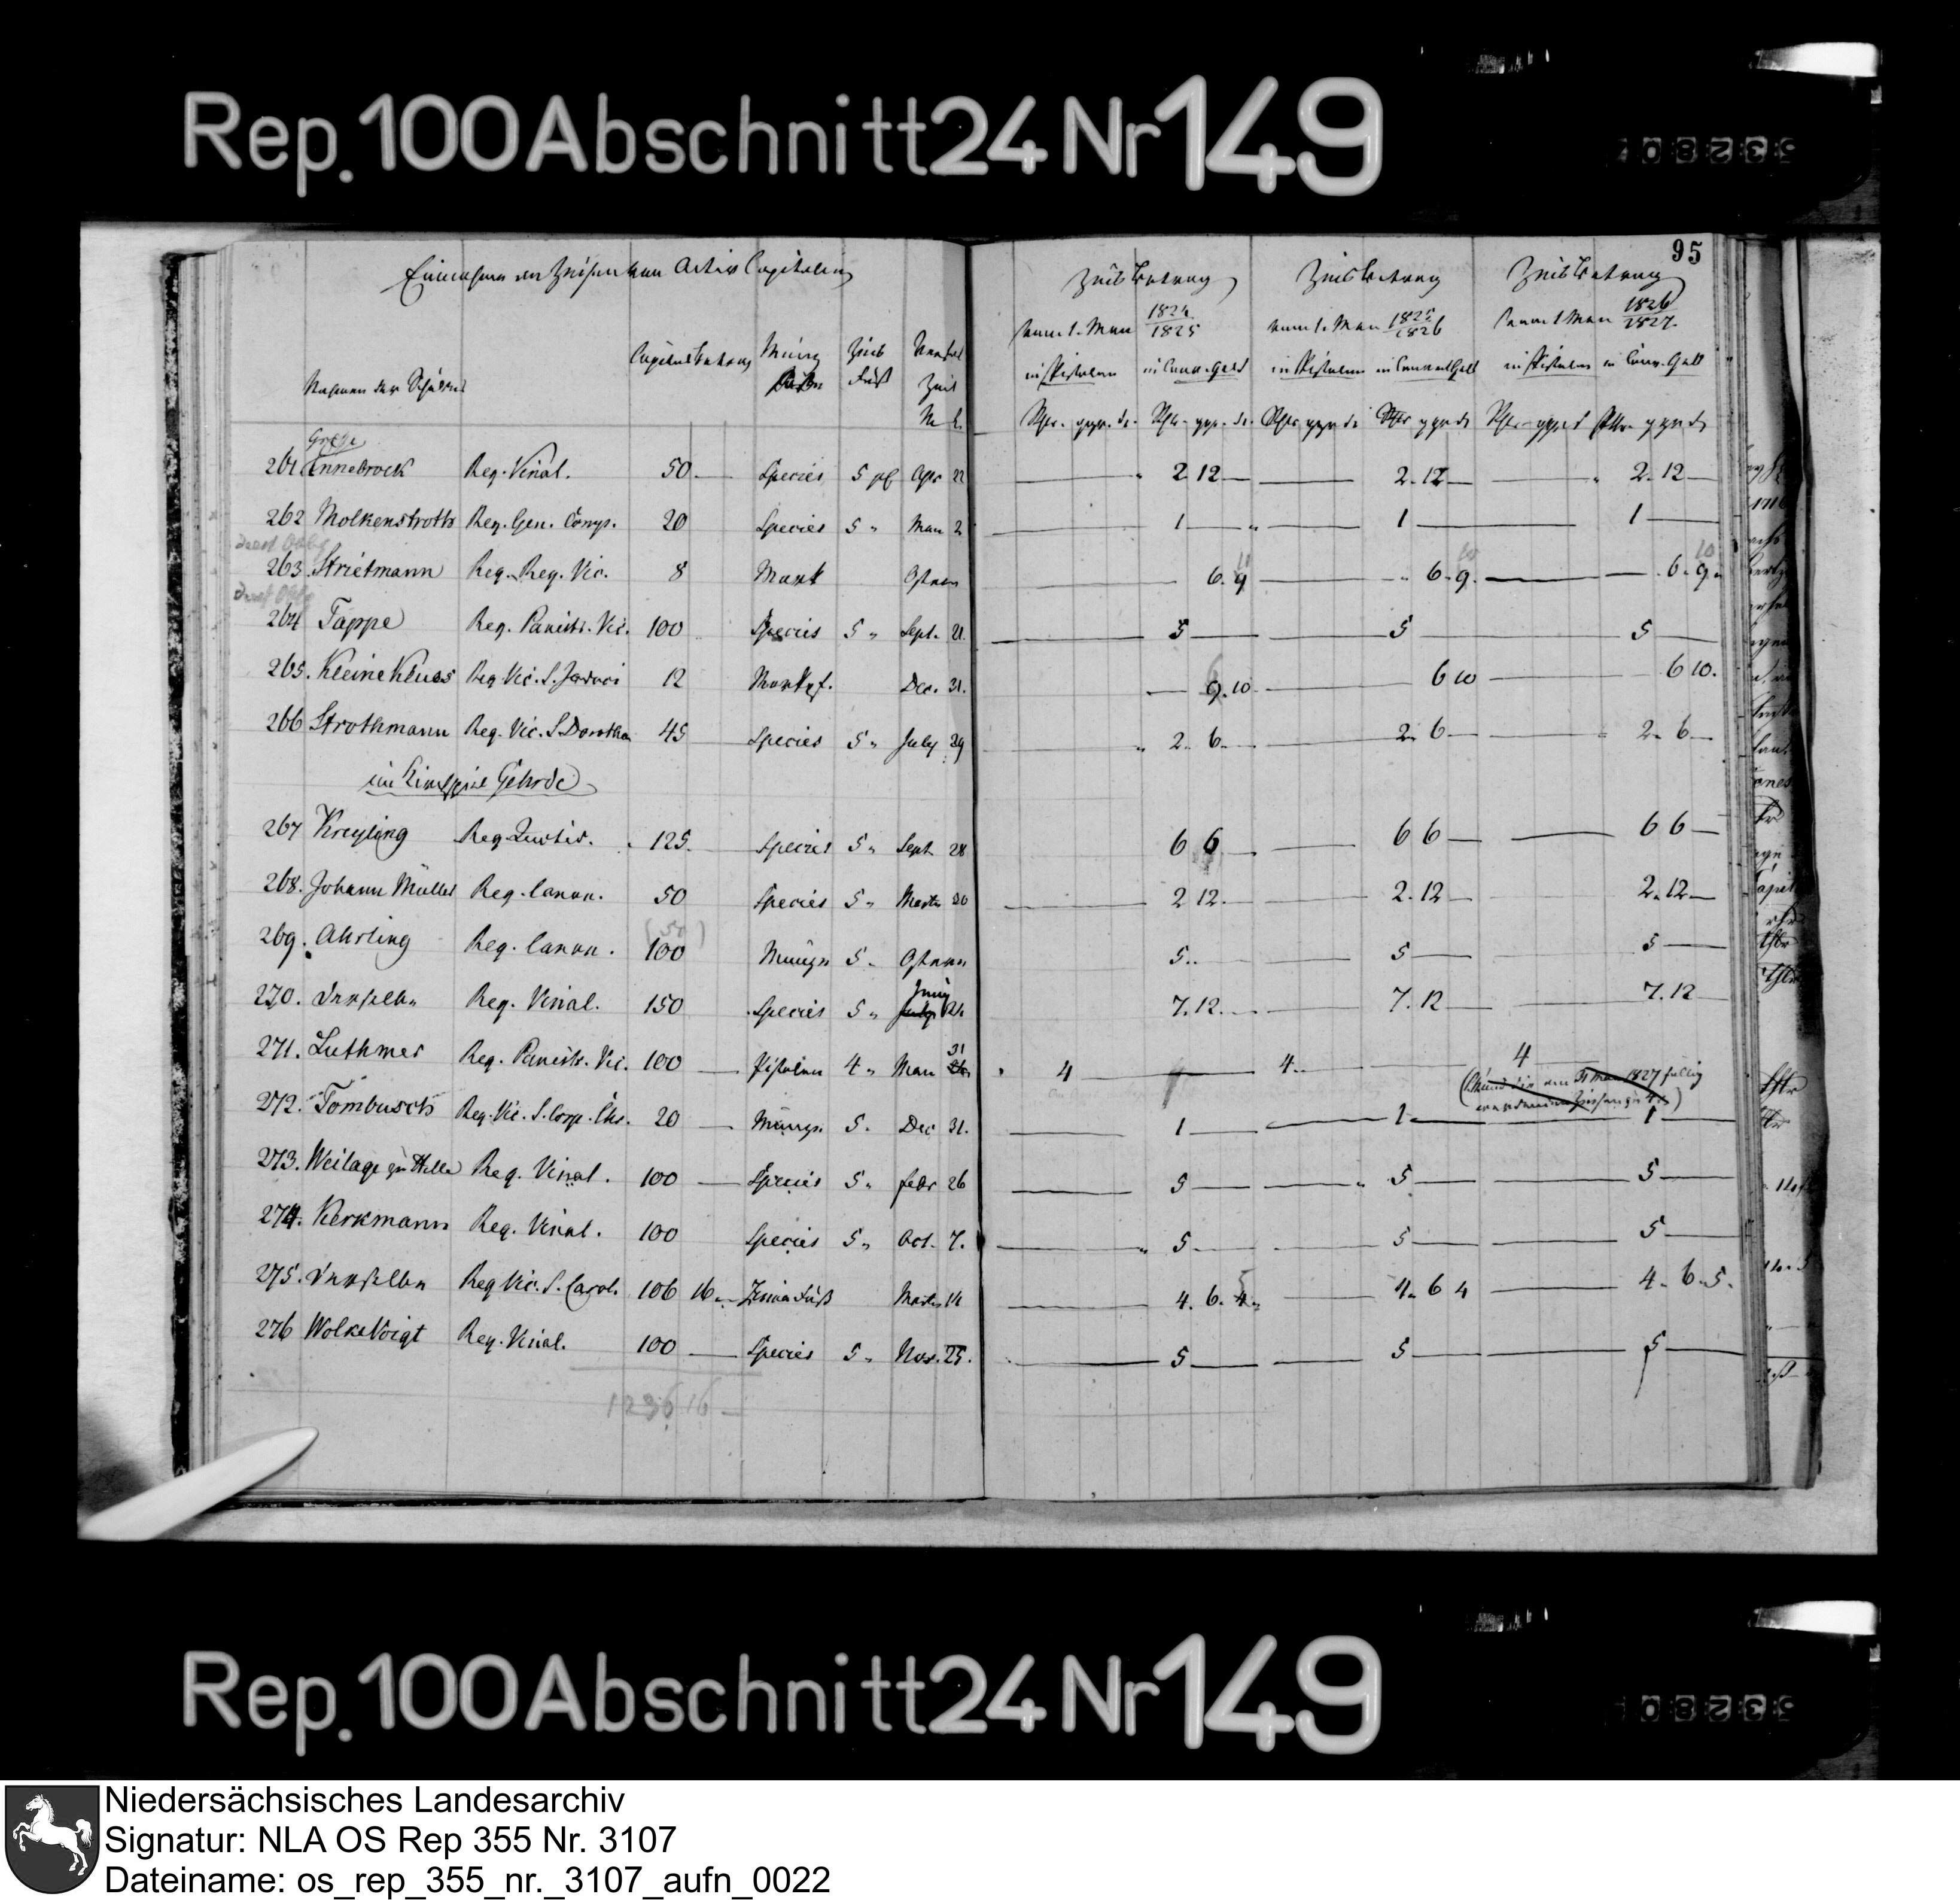 Rep. 100 Abschnitt 24 Nr 149
95
Einnahme an Zinsen von Activ Capitalien
Zinsbetrag Zinsbetrag Zinsbetrag
vom 1. May 1824/1825 vom 1. May 1825/1826 vom 1 May 1826/1827
Namen der Schuldner Capitalbetrag Münz Zins Fuß Verfall Zeit
in Pistolen in Conv. Geld in Pistolen in Convent Geld in Pistolen in Conv. Geld
Rthr. ggr. d. Rthr. ggr. d. Rthr ggr d Rthr ggr d Rthr ggr d Rthr ggr d
Grosse
261 Ennebrock Reg. Vicial. 50 Species 5 pC Apr 22 2 12 2. 12 2. 12
262 Molkenstroth Reg. Gen. Comp. 20 Species 5 " May 2 1 1 1
263. Strietmann Reg. Reg. Vic. 8 Mark Ostern 6. 9 6. 9. 6. 9.
10 10
264 Tappe Reg. Panistr. Vic. 100 Species 5 " Sept. 21. 5 5 5
265. Kleine Kluss Reg Vic. S. 12 Markpf. Dec. 31. 9. 10 6 10 6 10.
266 Strothmann Reg. Vic. S. Dorothea 45 Species 5 " July 29 2. 6 2. 6 2. 6
im Kirchspiel Gehrde
267 Kreyling Reg. 125. Species 5 " Sept 28 6 6 6 6 6 6
268. Johann Müller Reg. Canon. 50 Species 5 " Martz 20 2 12. 2. 12 2. 12
(50)
269. Ahrling Reg. Canon. 100 Münze 5 " Ostern 5. 5 5
Juny
270. Derselbe Reg. Vicial. 150 Species 5 " July 21. 7. 12. 7. 12 7. 12
31
271. Luthmer Reg. Panistr. Vic. 100 Pistolen 4 " May 4 4 4
den 31 May 1827 fällig
272. Tombusch Reg. Vic. S. Corp. Chr. 20 Münze 5. Dec 31. 1 1 1
273. Weilage zu Helle Reg. Vicial. 100 Species 5 " Febr 26 5 5 5
274. Kerkmann Reg. Vicial. 100 Species 5 " Oct. 7. 5 5 5
275. Derselbe Reg Vic. S. Carol. 106 16 Martz 14 4. 6. 4. 4. 6 4 4. 6. 5.
5
276 Wolke Voigt Reg. Vicial. 100 Species 5 " Nov. 25. 5 5 5
1236 16
Rep. 100 Abschnitt 24 Nr 149
Niedersächsisches Landesarchiv
Signatur: NLA OS Rep 355 Nr. 3107
Dateiname: os_rep_355_nr._3107_aufn_0022